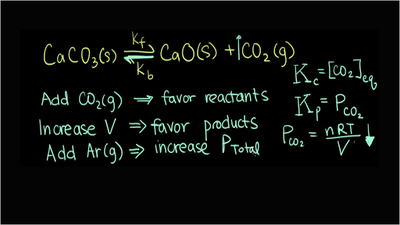 CaCO₃(s) ⇌ CaO(s) + ↑CO₂(g)
K_f
K_b
Add CO₂(g) ⇒ favor reactants
Increase V ⇒ favor products
Add Ar(g) ⇒ increase P_Total
K_c = [CO₂]_eq
K_p = P_CO₂
P_CO₂ = nRT/V ↓